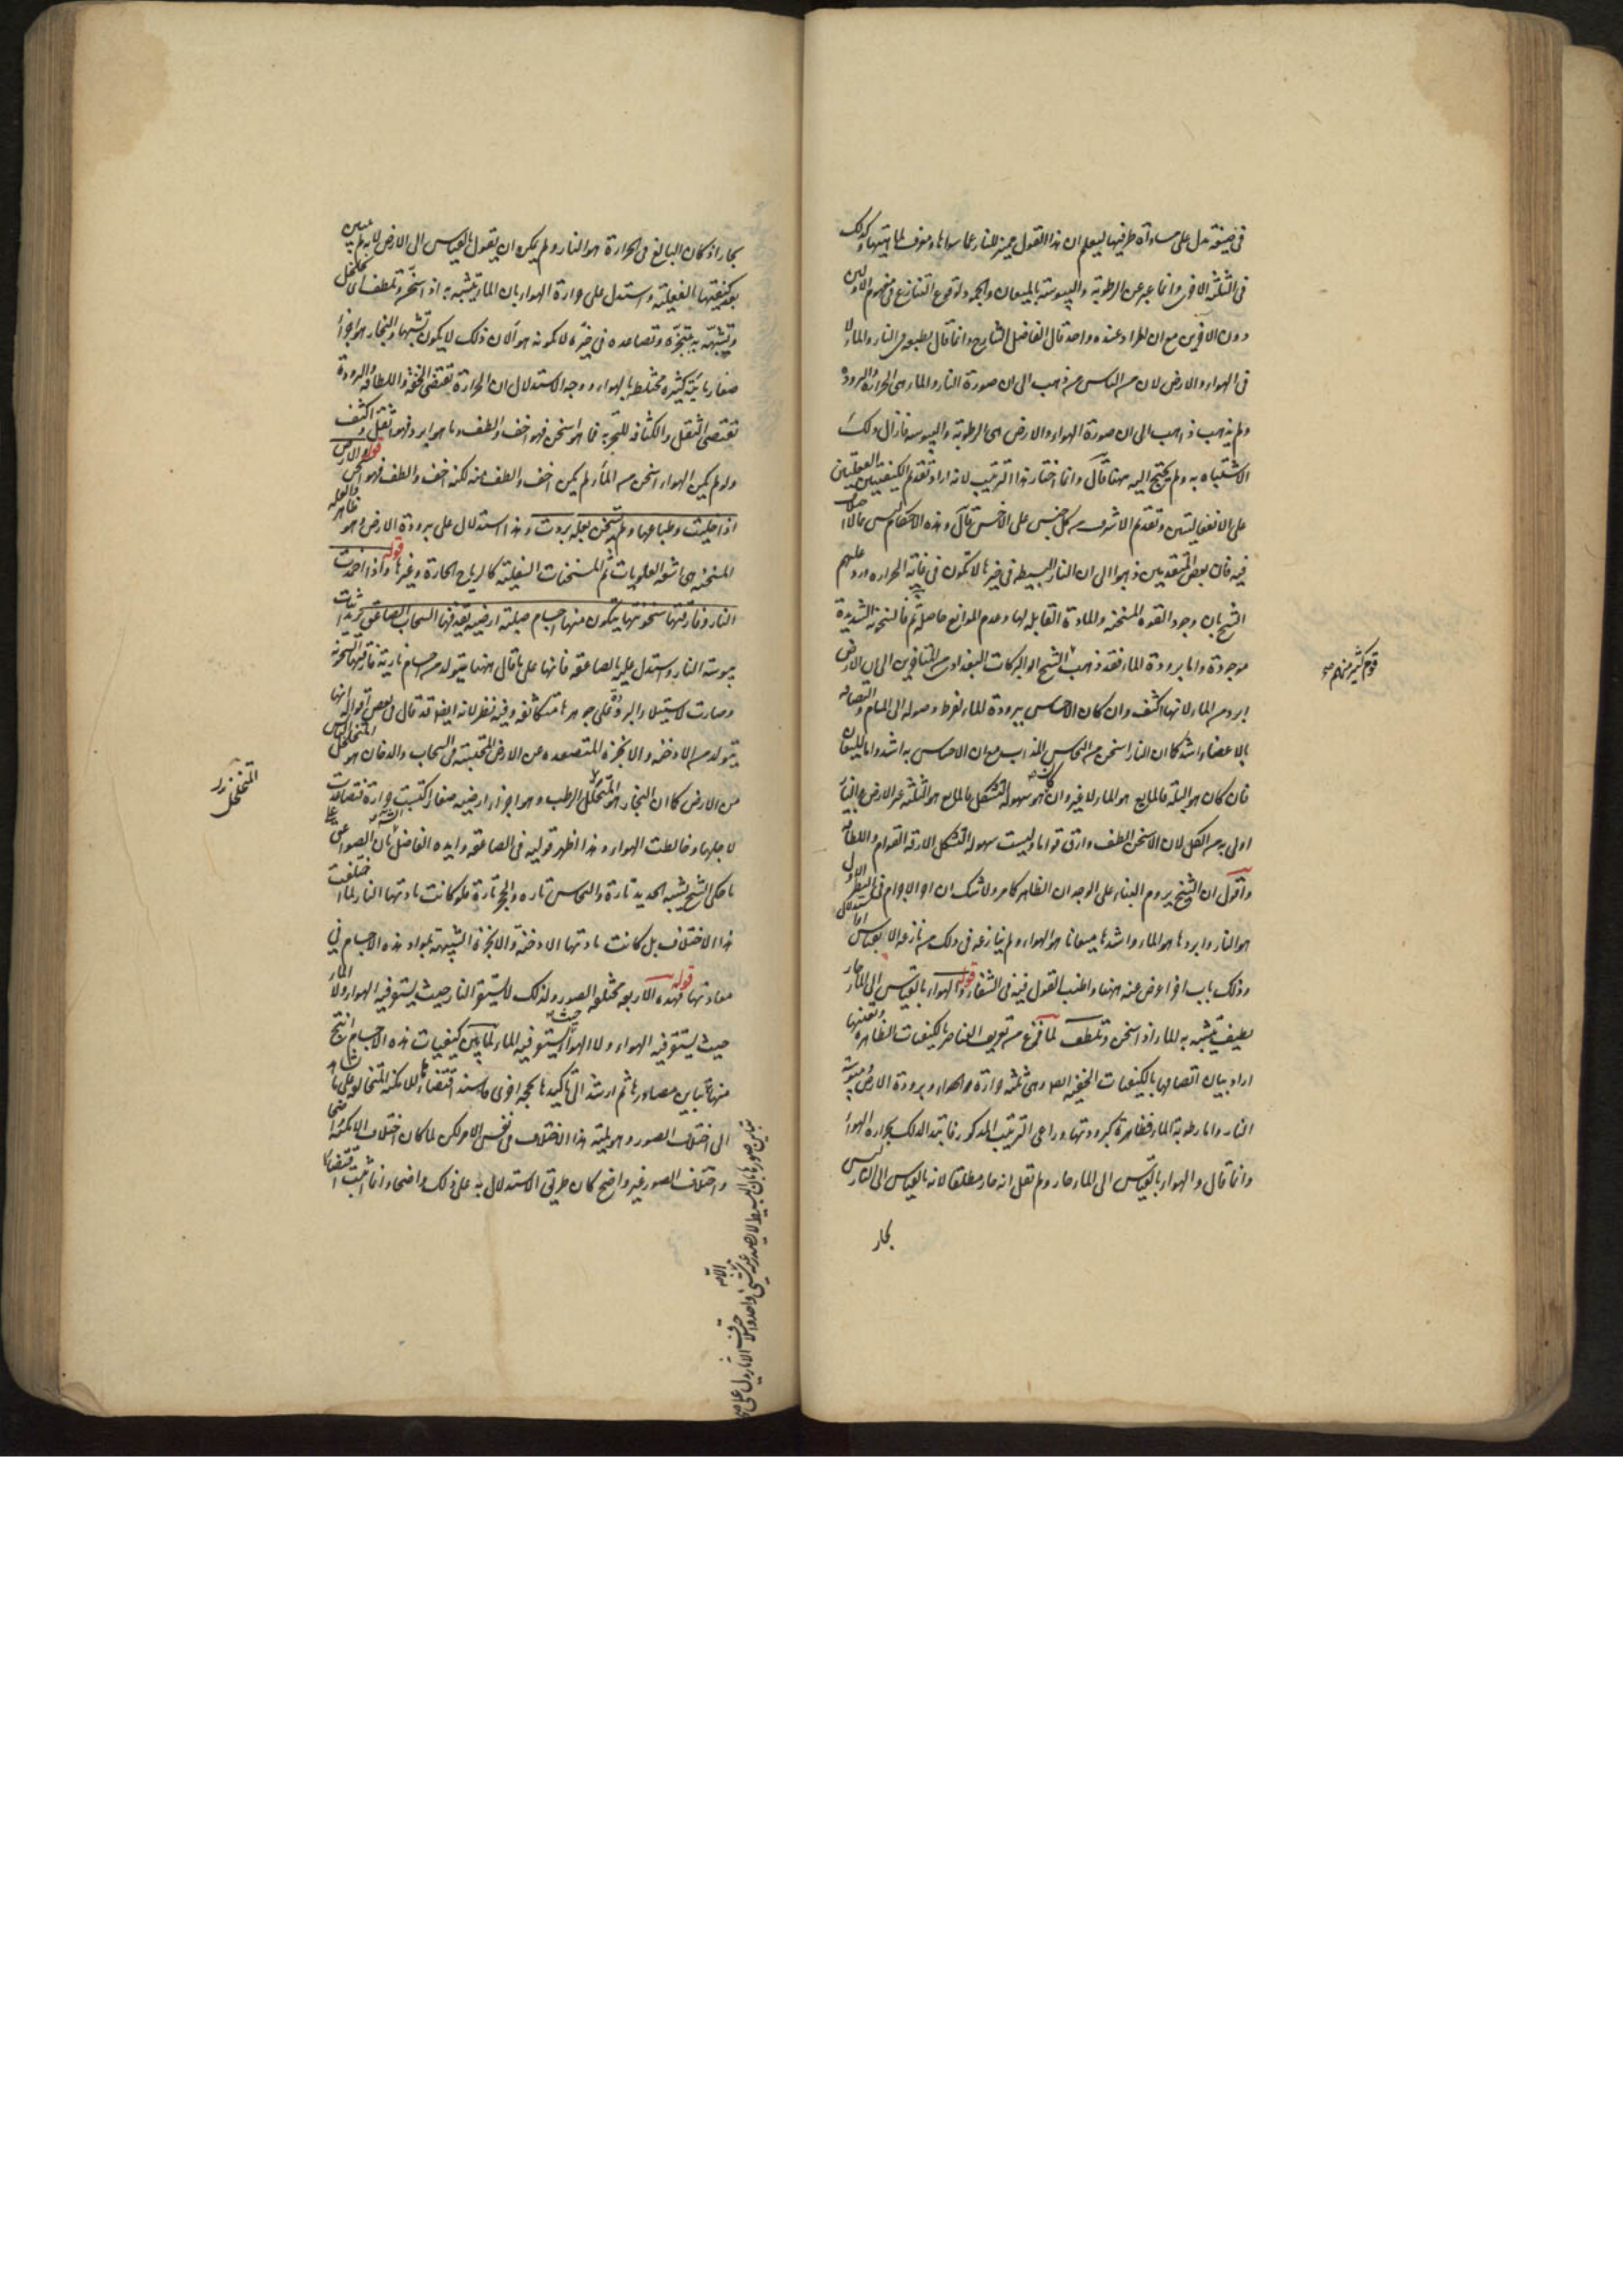 في صيغة تدل على مساواة طرفيها ليعلم ان هذا القول مميز للنار عما سواها ومعرف لماهيتها وكذلك
في الثلثة الاخرى وانما عبر عن الرطوبة واليبوسة بالميعان والجمود لوقوع التنازع في مفهوم الاولين
دون الاخرين مع ان المراد عنده واحد قال الفاضل الشارح وانما قال بطبعه في النار والماء لا
في الهواء والارض لان من الناس من ذهب الى ان صورة النار والماء هي الحرارة والبرودة
ولم يذهب ذاهب الى ان صورة الهواء والارض هي الرطوبة واليبوسة فازال ذلك
الاشتباه به ولم يحتج اليه ههنا قال وانما اختار هذا الترتيب لانه اراد تقديم الكيفيتين الفعليتين
على الانفعاليتين وتقديم الاشرف من كل جنس على الاخس قال وهذه الاحكام ليس مما لا خلاف
فيه فان بعض المتقدمين ذهبوا الى ان النار البسيطة في حيزها لا تكون في غاية الحرارة ورد عليهم
الشيخ بان وجود القوة المسخنة والمادة القابلة لها وعدم الموانع حاصلة ثم فالسخونة الشديدة
موجودة واما برودة الماء فقد ذهب الشيخ ابو البركات البغدادي من المتاخرين الى ان الارض
ابرد من الماء لانها اكثف وان كان الاحساس ببرودة الماء لفرط وصوله الى المسام والتصاقه
بالاعضاء اشد كما ان النار اسخن من النحاس المذاب مع ان الاحساس به اشد واما الميعان
فان كان هو البلة فالمايع هو الماء لا غير وان كان هو سهولة التشكل فالمايع هو الثلثة غير الارض والنار
اولى به من الكل لان الاسخن الطف وارق قواما وليست سهولة التشكل الا رقة القوام واللطافة
واقول ان الشيخ يروم البناء على الوجدان الظاهر كما مر ولا شك ان احر الاجرام في النظر الاول
هو النار وابردها هو الماء واشدها ميعانا هو الهواء ولم ينازعه في ذلك من نازعه الا بقياس او استدلال
وذلك باب اخر اعرض عنه ههنا واطنب القول فيه في الشفاء قوله والهواء بالقياس الى الماء حار
لطيف يتشبه به الماء اذا سخن وتلطف لما فرغ من تعريف العناصر بالكيفيات الظاهرة وتعيينها
اراد بيان اتصافها بالكيفيات الخفية وهي ثلثة حرارة الهواء وبرودة الارض ويبوسة
النار واما رطوبة الماء فظاهرة كبرودتها وراعى الترتيب المذكور فابتدا لذلك بحرارة الهواء
وانما قال والهواء بالقياس الى الماء حار ولم يقل انه حار مطلقا لانه بالقياس الى النار ليس
بحار
قوم كثير منهم
بحار اذ كان البالغ في الحرارة هو النار ولم يمكن ان يقول بالقياس الى الارض لانه لم يبين
بعد كيفيتها الفعلية واستدل على حرارة الهواء بان الماء يتشبه به اذا سخن وتلطف اي تخلخل
وتشبهه به تبخره وتصاعده في حيزه لا كونه هواء لان ذلك لا يكون تشبها والبخار هو اجزاء
صغار مائية كثيرة مختلطة بالهواء ووجه الاستدلال ان الحرارة تقتضي الخفة واللطافة والبرودة
تقتضي الثقل والكثافة للتجربة فما هو اسخن فهو اخف والطف وما هو ابرد فهو اثقل واكثف
ولو لم يكن الهواء اسخن من الماء لم يكن اخف والطف منه لكنه اخف والطف فهو اسخن قوله والارض
اذا خليت وطباعها ولم تسخن بعلة بردت وهذا استدلال على برودة الارض وهو ظاهر والعلة
المسخنة هي اشعة العلويات ثم المسخنات السفلية كالرياح الحارة وغيرها قوله واذا خمدت
النار وفارقتها سخونتها يتكون منها اجسام صلبة ارضية يقذفها السحاب الصاعق يريد اثبات
يبوسة النار واستدل عليه بالصاعقة فانها على ما قال ههنا يتولد من اجسام نارية فارقتها السخونة
وصارت لاستيلاء البرودة على جوهرها متكاثفة وفيه نظر لانه ايضا قد قال في بعض اقواله انها
يتولد من الادخنة والابخرة المتصعدة من الارض المحتبسة في السحاب والدخان هو المتخلخل اليابس
من الارض كما ان البخار هو المتخلل الرطب وهو اجزاء ارضية صغار اكتسبت حرارة فتصاعدت
لاجلها وخالطت الهواء وهذا اظهر قوليه في الصاعقة وايده الفاضل الشارح بان الصواعق على
ما حكى الشيخ يشبه الحديد تارة والنحاس تارة والحجر تارة فلو كانت مادتها النار لما اختلفت
هذا الاختلاف بل كانت مادتها الادخنة والابخرة الشبيهة بمواد هذه الاجسام في
معادنها قوله فهذه الاربعة مختلفة الصور ولذلك لا يستقر النار حيث يستقر فيه الهواء ولا الماء
حيث يستقر فيه الهواء ولا الهواء حيث يستقر فيه الماء لما بين كيفيات هذه الاجسام انتج
منها تباين مصادرها ثم ارشد الى تاكيدها بحجة اخرى فاسند اقتضاءها للامكنة المتخالفة
الى اختلاف الصور وهو لمية هذا الاختلاف في نفس الامر لكن لما كان اختلاف الامكنة
واختلاف الصور غير واضح كان طريق الاستدلال به على ذلك واضحا وانما اثبت
المتخلخل
تباين صورها بان البسيط لا يصدر عنه شيئان